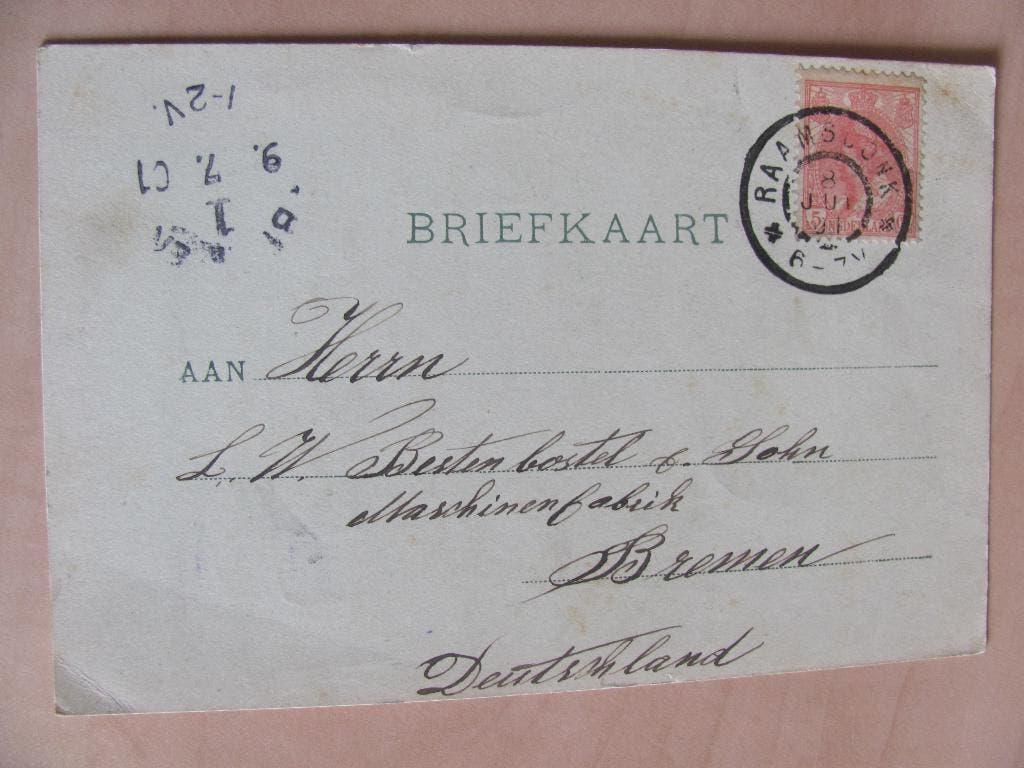 1-2V.
9. 7. 01
1
BRIEFKAART
RAAMSDONK
8
JUL
01
6-7V
5 NEDERLAND
AAN Herrn
L. W. Bestenbostel & Sohn
Maschinenfabrik
Bremen
Deutschland